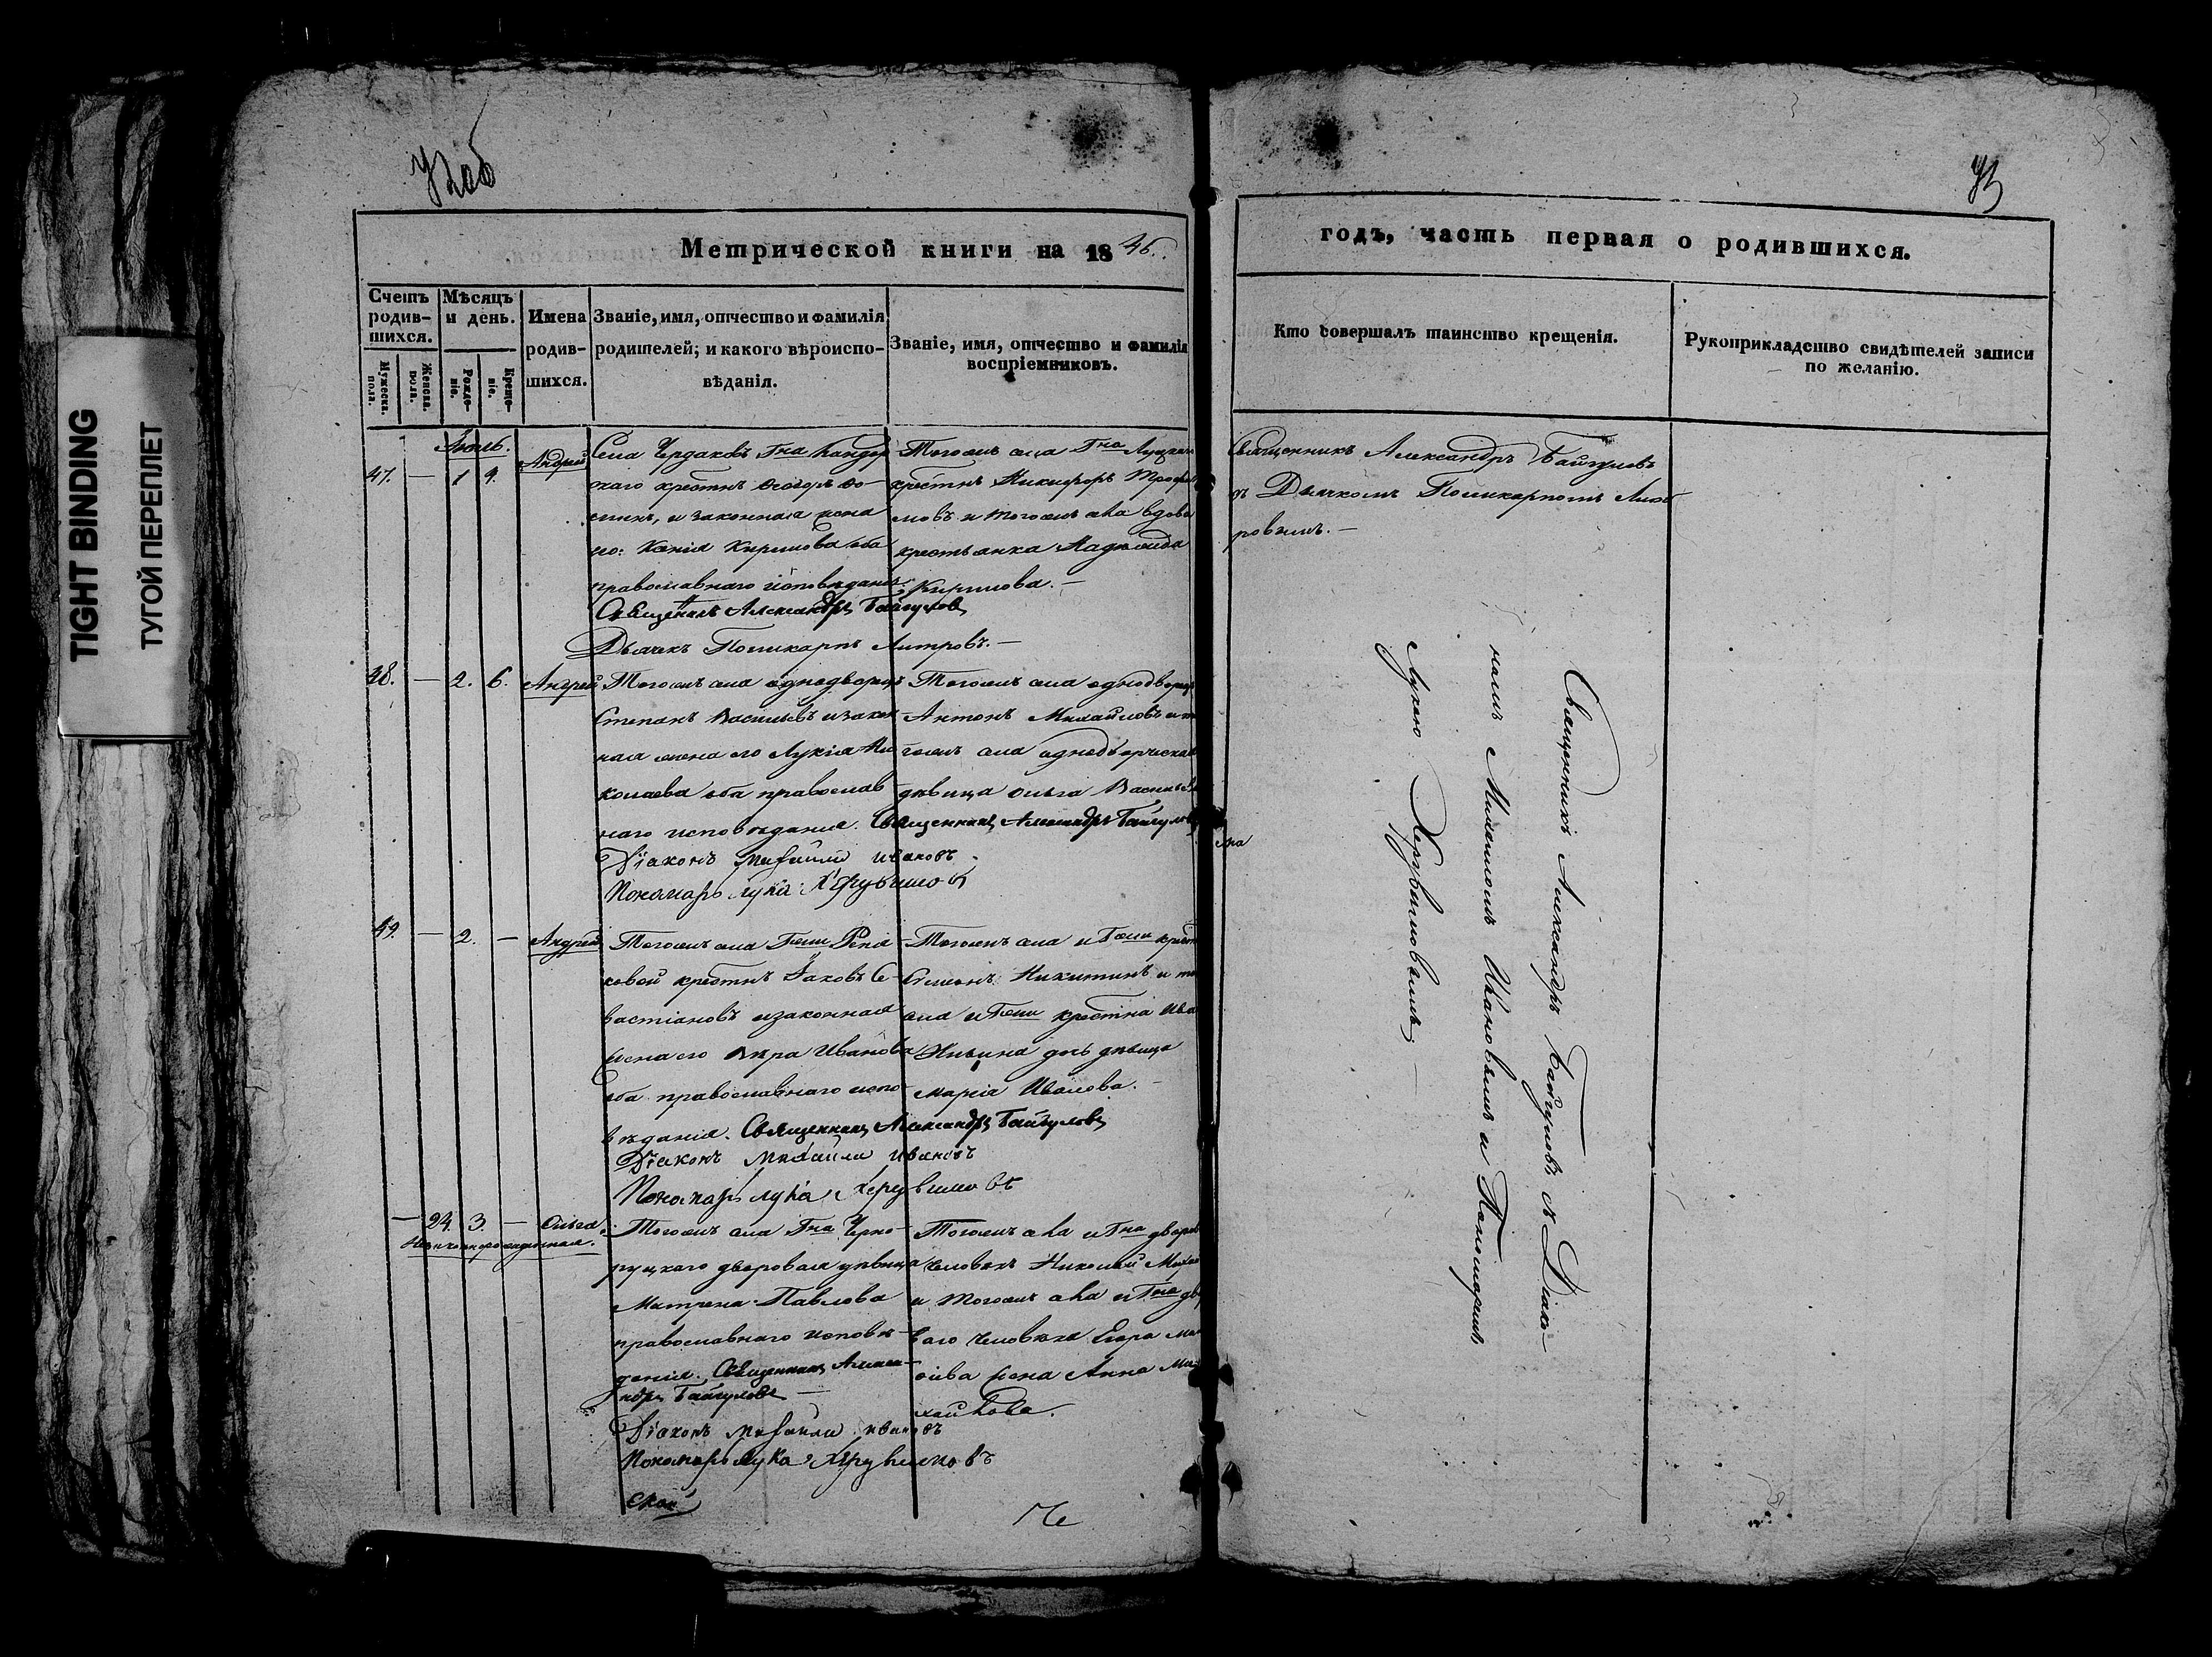 TIGHT BINDING
ТУГОЙ ПЕРЕПЛЕТ
72об
73
Метрической книги на 1846.
годъ, часть первая о родившихся.
Счетъ родив-
шихся.
Мужеска. пола.
Женска. пола.
Мѣсяцъ и день.
Рожде-
ніе.
Креще-
ніе.
Имена
родив-
шихся.
Званіе, имя, отчество и фамилія
родителей, и какого вѣроиспо-
вѣданія.
Званіе, имя, отчество и фамилія
воспріемниковъ.
Кто совершалъ таинство крещенія.
Рукоприкладство свидѣтелей записи
по желанію.
Іюль.
47. — 1 9. Андрей
Села Чердаковъ Гна
скаго крестнъ Ѳеодоръ Ѳо-
минъ, и законная жена
его: Ксенія Кирилова оба
православнаго исповѣданія.
Священникъ Александръ Байгуловъ
Дьячекъ Поликарпъ
Тогожъ села Гна
крестнъ Никифоръ
мовъ и тогожъ села вдова
крестьянка
Кирилова. —
Священникъ Александръ Байгуловъ
съ Дьячкомъ Поликарпомъ
ровымъ. —
48. — 2. 6. Андрей
Тогожъ села однодворецъ
Степанъ Васильевъ и закон
ная жена его Лукія Ни
колаева оба православ
наго исповѣданія. Священникъ Александръ Байгуловъ
Діаконъ Михаилъ Ивановъ
Пономарь Лука Херувимовъ
Тогожъ села однодворецъ
Антонъ Михайловъ и т
гожъ села однодворческая
дѣвица Ольга Василье
вна
49. — 2. — Андрей
Тогожъ села Гжи
ковой крестнъ Іаковъ Се-
вастіановъ и законная
жена его Вѣра Иванова
оба православнаго испо-
вѣданія. Священникъ Александръ Байгуловъ
Діаконъ Михаилъ Ивановъ
Пономарь Лука Херувимовъ
Тогожъ села и Гжи крест
Симеонъ Никитинъ и то
села и Гжи крестнна Ива
Ильина дочь дѣвица
Марія Иванова. —
— 24. 3. — Ольга
Незаконнорожденная.
Тогожъ села Гна Черно-
руцкаго дворовая дѣвица
Матрена Павлова
православнаго исповѣ-
данія. Священникъ Алекса-
ндръ Байгуловъ —
Діаконъ Михаилъ Ивановъ
Пономарь Лука Херувимовъ
Тогожъ села и Гна дворов
человѣкъ Николай
и тогожъ села и Гна дв
ваго человѣка Егора
жена Анна Ми
хайлова.
Священникъ Александръ Байгуловъ съ Діако-
номъ Михаиломъ Ивановымъ и Пономаремъ
Лукою Херувимовымъ —